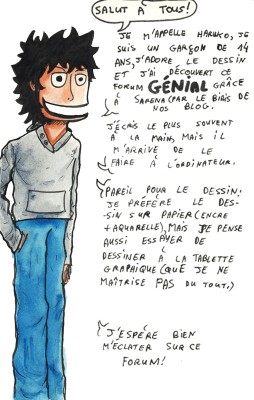 SALUT À TOUS!
JE M'APPELLE HARUKO, JE
SUIS UN GARÇON DE 14
ANS, J'ADORE LE DESSIN
ET J'AI DÉCOUVERT CE
FORUM GÉNIAL GRÂCE
À SARENA (PAR LE BIAIS DE
NOS BLOG.
J'ÉCRIS LE PLUS SOUVENT
À LA MAIN, MAIS IL
M'ARRIVE DE LE
FAIRE À L'ORDINATEUR.
PAREIL POUR LE DESSIN:
JE PRÉFÈRE LE DES-
SIN SUR PAPIER (ENCRE
+ AQUARELLE), MAIS JE PENSE
AUSSI ESSAYER DE
DESSINER À LA TABLETTE
GRAPHIQUE (QUE JE NE
MAÎTRISE PAS DU TOUT.)
J'ESPÉRE BIEN
M'ÉCLATER SUR CE
FORUM!